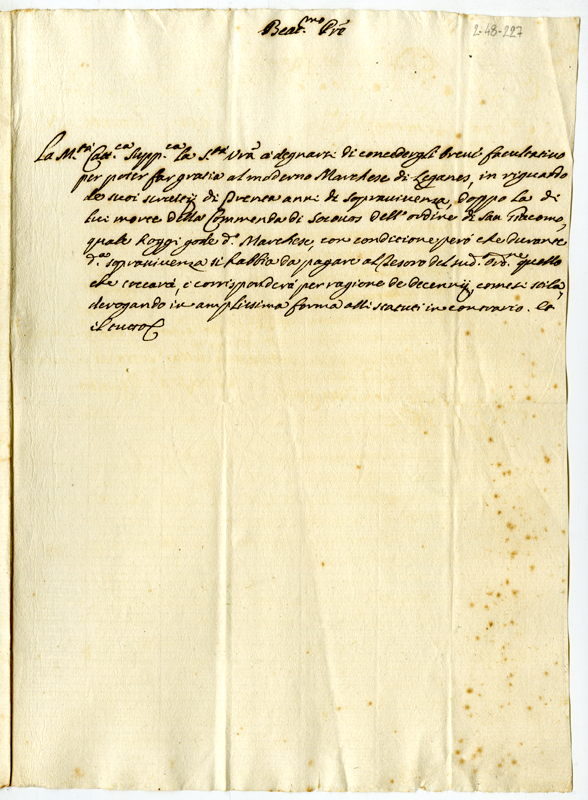 Beat.mo Pre
2-48-227
La M.tà Catt.ca supp.ca la S.tà Vra à degnarsi di concedergli breve facultativo
per poter far gratia al moderno Marchese di Leganes, in riguardo
de suoi servitij di trenta anni di sopravivenza, doppo la di
lui morte della Commenda di Socovos dell'ordine di San Giacomo,
quale hoggi gode d.o Marchese, con condicione però che durante
d.a sopravivenza si habbia da pagare al tesoro del sud.o Ord.ne quello
che toccará, e corrisponderá per ragione de decennij, come si stila,
derogando in amplissima forma alli statuti in contrario. Et
il tutto